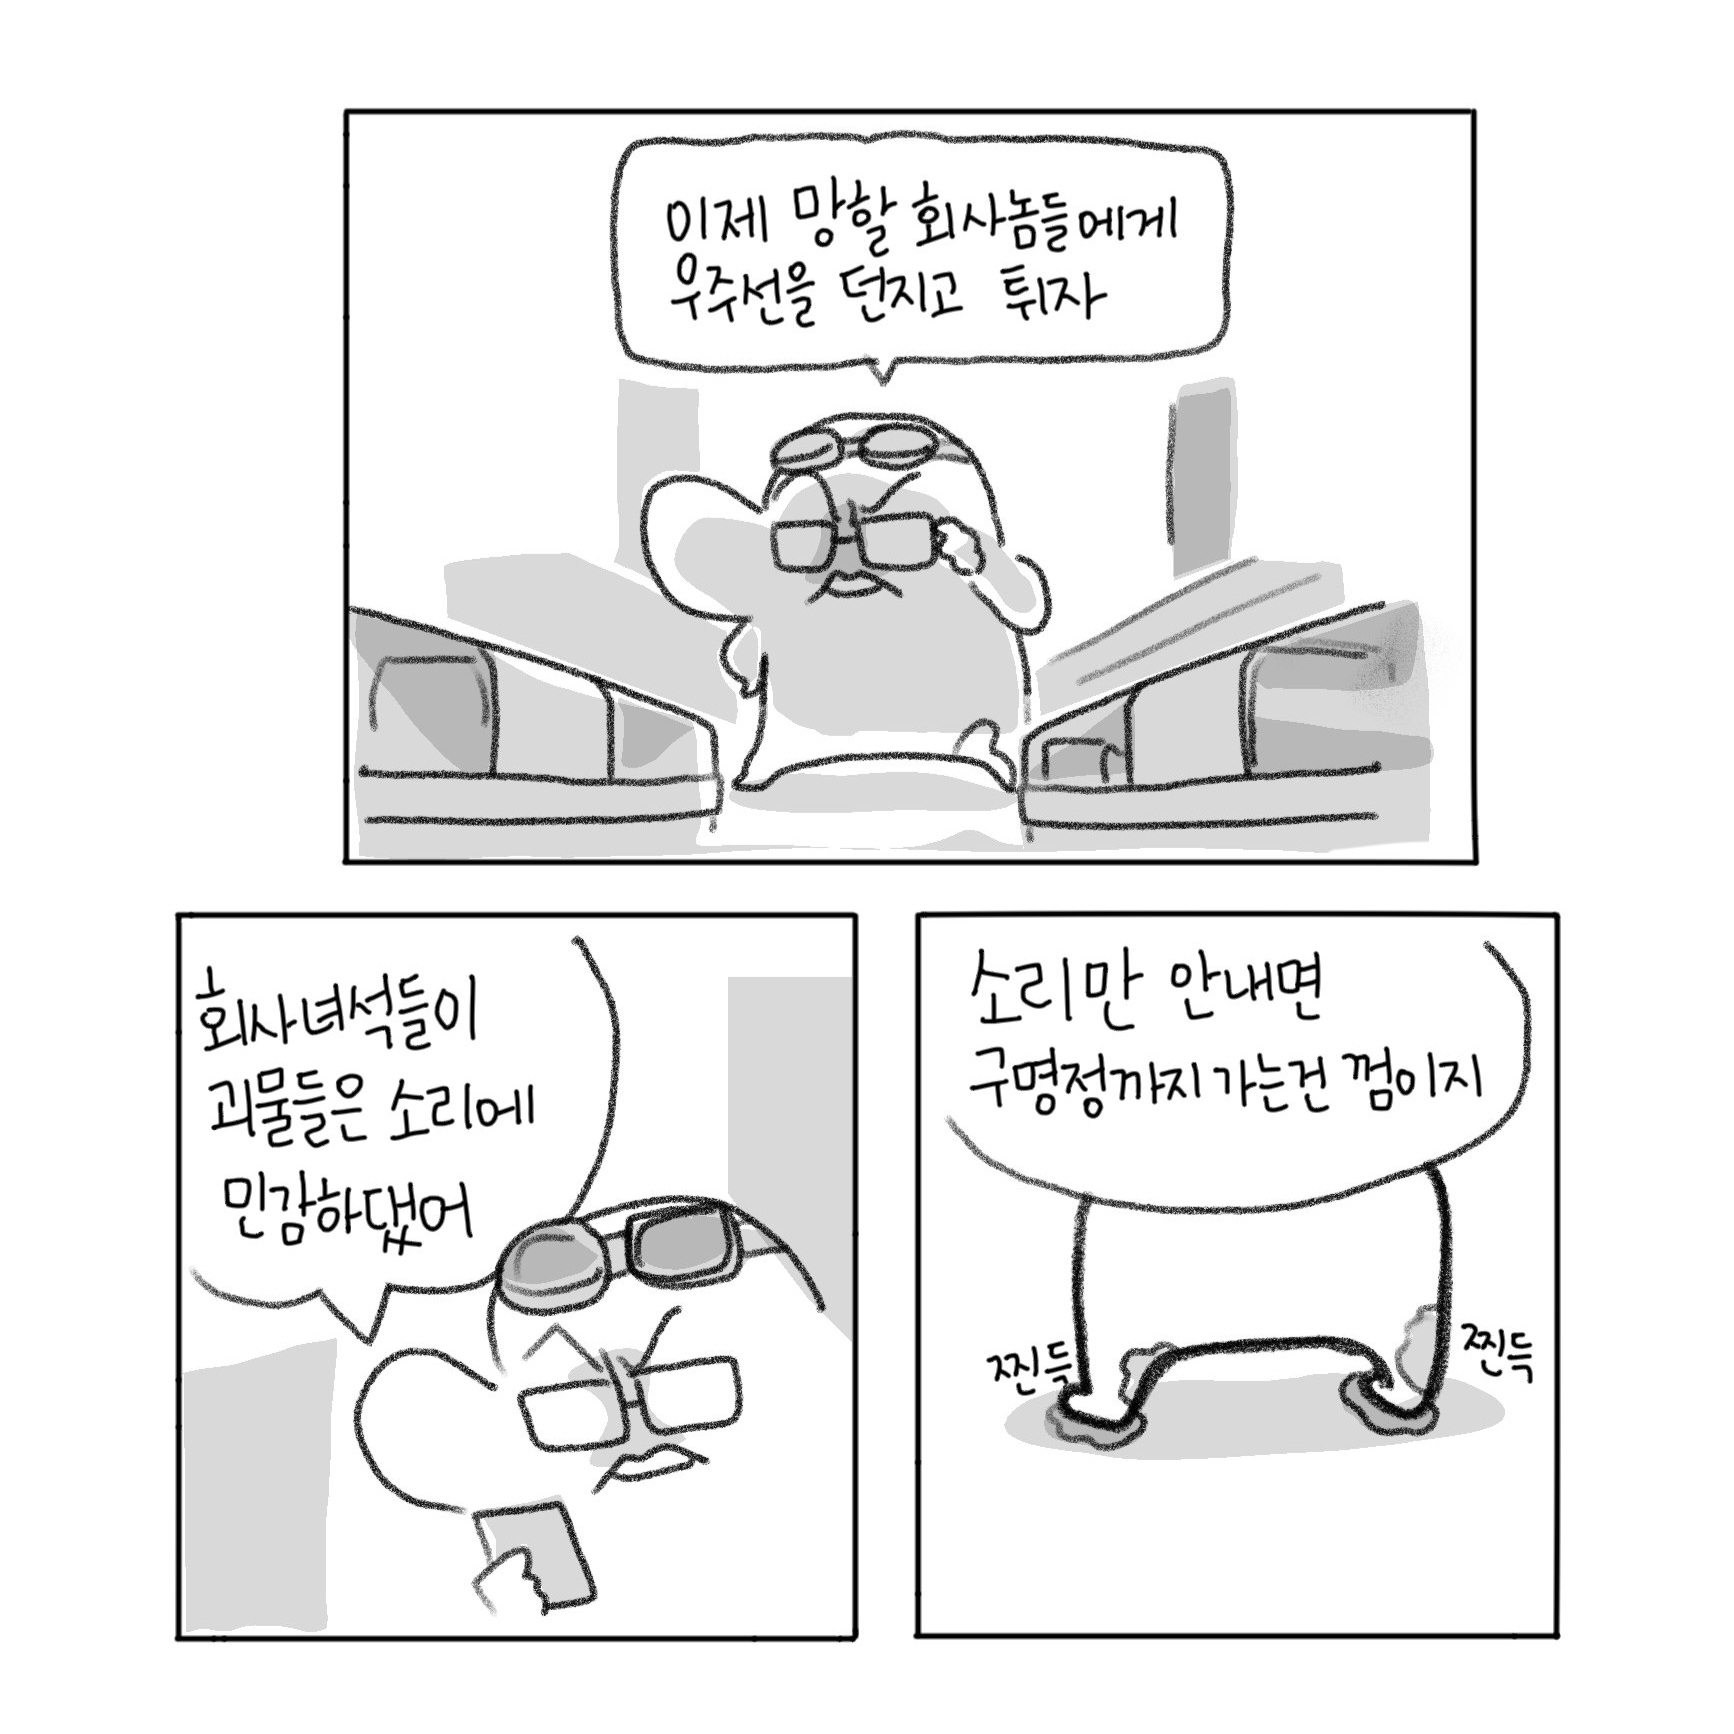 이제 망할 회사놈들에게
우주선을 던지고 튀자
회사녀석들이
괴물들은 소리에
민감하댔어
소리만 안내면
구명정까지 가는건 껌이지
찐득
찐득